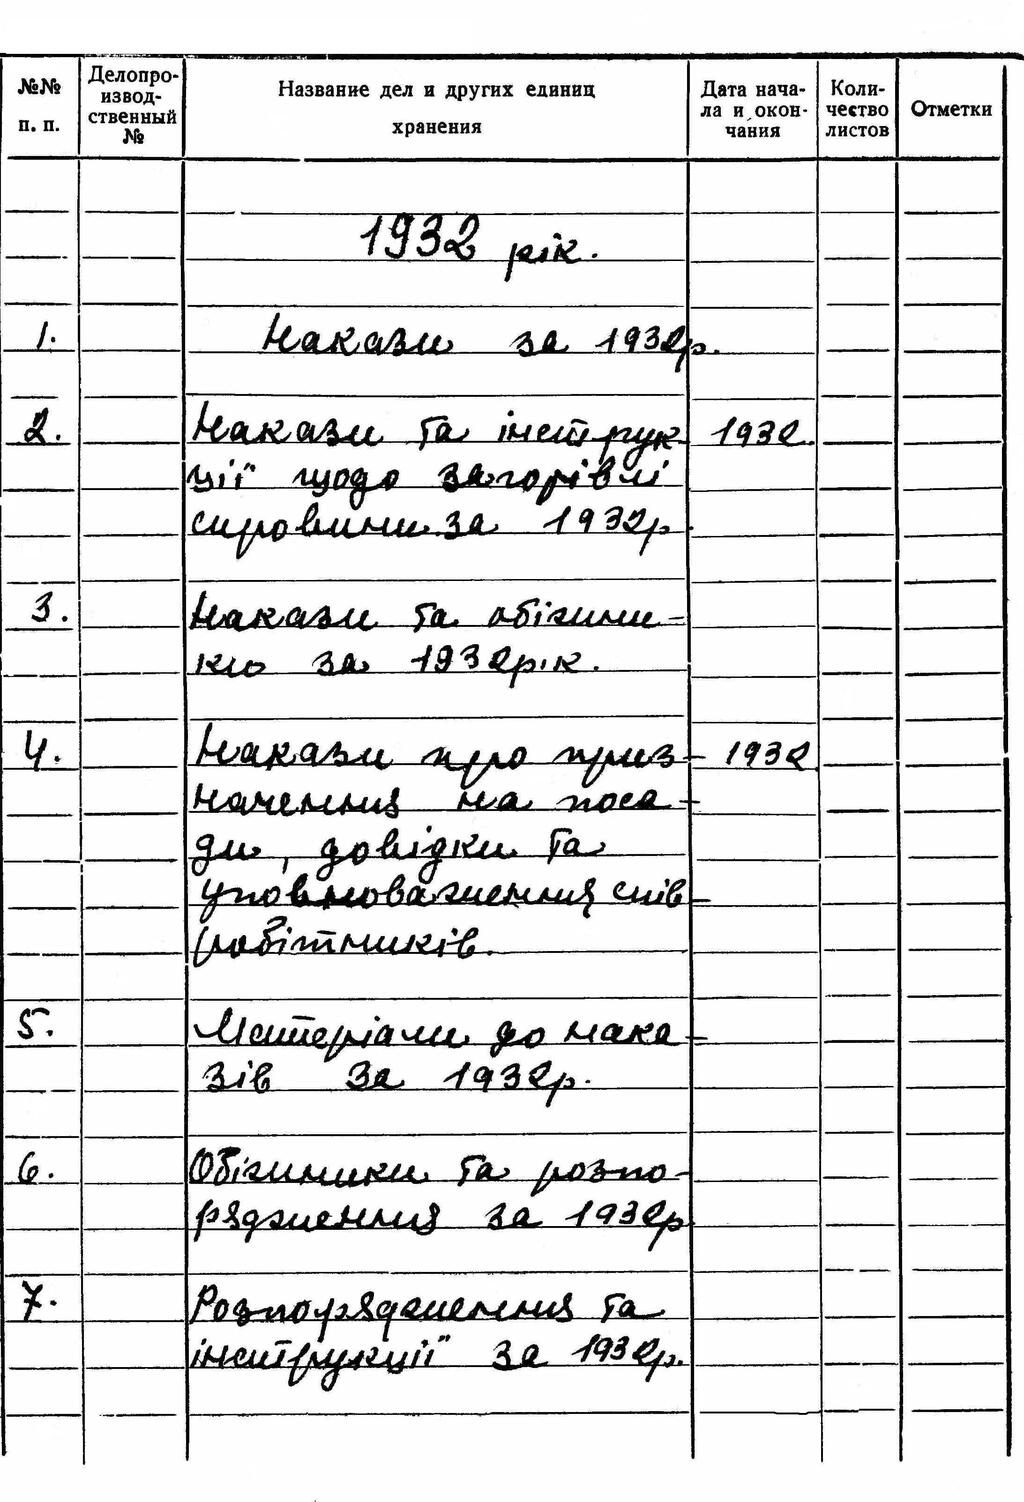 №№ п. п.
Делопро-
извод-
ственный
№
Название дел и других единиц
хранения
Дата нача-
ла и окон-
чания
Коли-
чество
листов
Отметки
1932 рік.
1. Накази за 1932р.
2. Накази та інструк- 1932.
ції щодо заготівлі
сировини за 1932р.
3. Накази та обіжни-
ки за 1932рік.
4. Накази про приз- 1932
начення на поса-
ди, довідки та
уповноваження спів-
робітників.
5. Матеріали до нака-
зів за 1932р.
6. Обіжники та розпо-
рядження за 1932р
7. Розпорядження та
інструкції за 1932р.